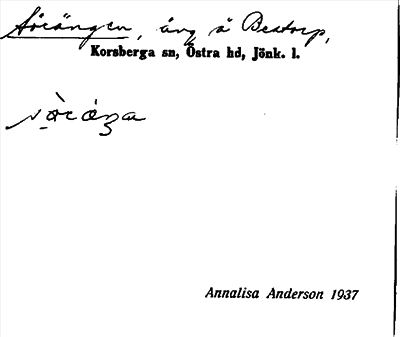 Sörängen, äng å Bestorp,
Korsberga sn, Östra hd, Jönk. l.
Annalisa Anderson 1937